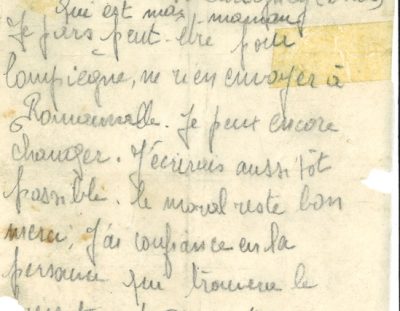 qui est mas mamans
Je pars peut-être pour
Compiègne, ne rien envoyer à
Romainville. Je peux encore
changer. J'écrirais aussitôt
possible. le moral reste bon
merci, J'ai confiance en la
personne qui trouvera le